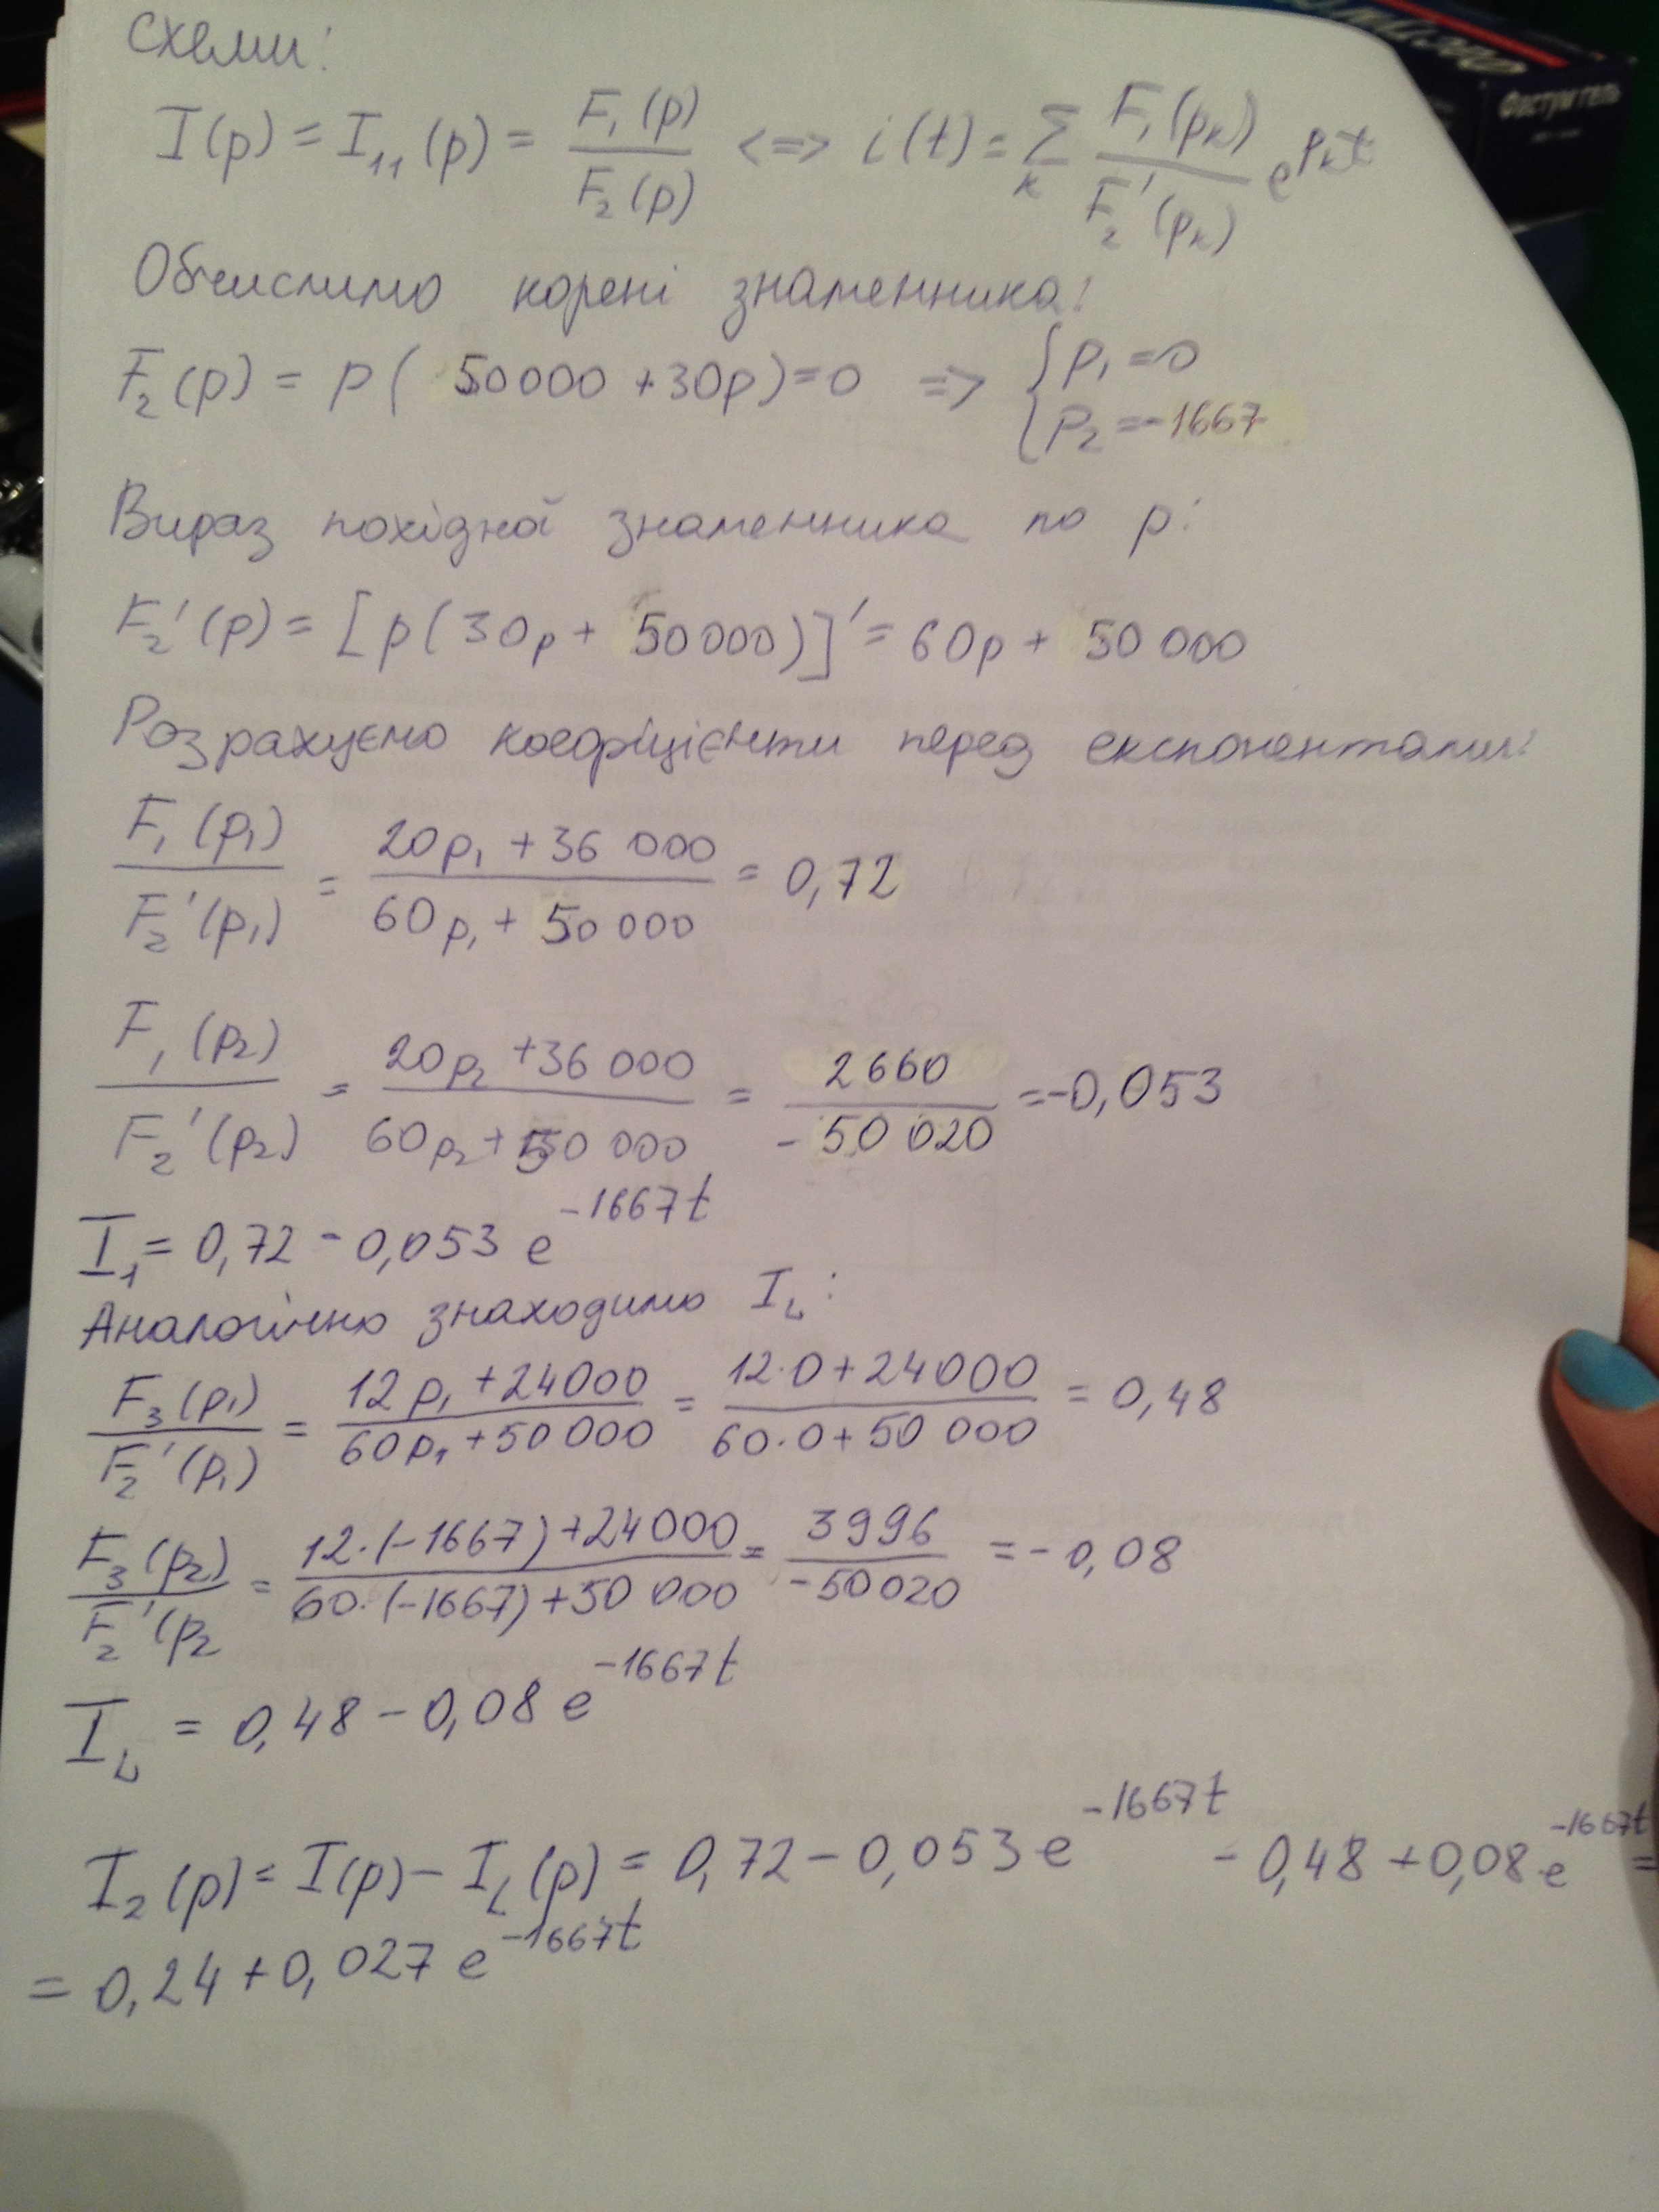 схеми:
I(p) = I₁₁(p) = F₁(p) / F₂(p) <=> i(t) = Σ_k F₁(pₖ) / F₂'(pₖ) e^(pₖt)
Фастум гель
Обчислимо корені знаменника:
F₂(p) = p( 50000 + 30p) = 0 => { p₁ = 0
{ p₂ = -1667
Вираз похідної знаменника по p:
F₂'(p) = [p(30p + 50000)]' = 60p + 50 000
Розрахуємо коефіцієнти перед експонентами:
F₁(p₁) / F₂'(p₁) = (20p₁ + 36 000) / (60p₁ + 50 000) = 0,72
F₁(p₂) / F₂'(p₂) = (20p₂ + 36 000) / (60p₂ + 50 000) = 2660 / -50 020 = -0,053
I₁ = 0,72 - 0,053 e^(-1667t)
Аналогічно знаходимо I_L:
F₃(p₁) / F₂'(p₁) = (12p₁ + 24000) / (60p₁ + 50 000) = (12·0 + 24000) / (60·0 + 50 000) = 0,48
F₃(p₂) / F₂'(p₂ = (12·(-1667) + 24000) / (60·(-1667) + 50 000) = 3996 / -50020 = -0,08
I_L = 0,48 - 0,08 e^(-1667t)
I₂(p) = I(p) - I_L(p) = 0,72 - 0,053 e^(-1667t) - 0,48 + 0,08 e^(-1667t) =
= 0,24 + 0,027 e^(-1667t)